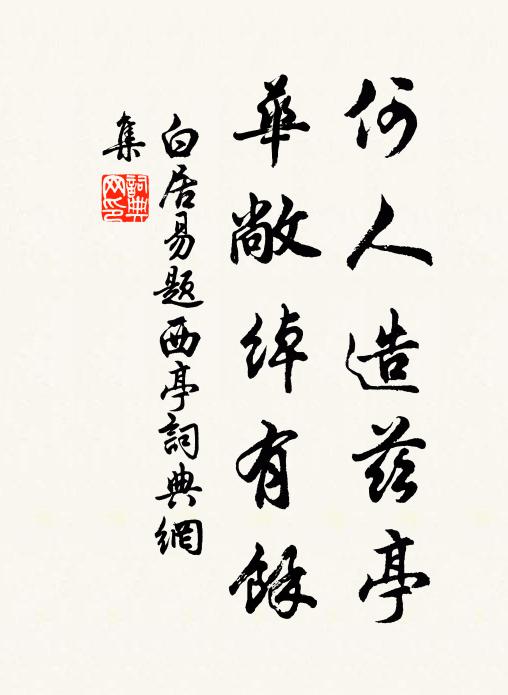 何人造茲亭
華敞綽有餘
白居易題西亭詞典網
集
詞典
网印